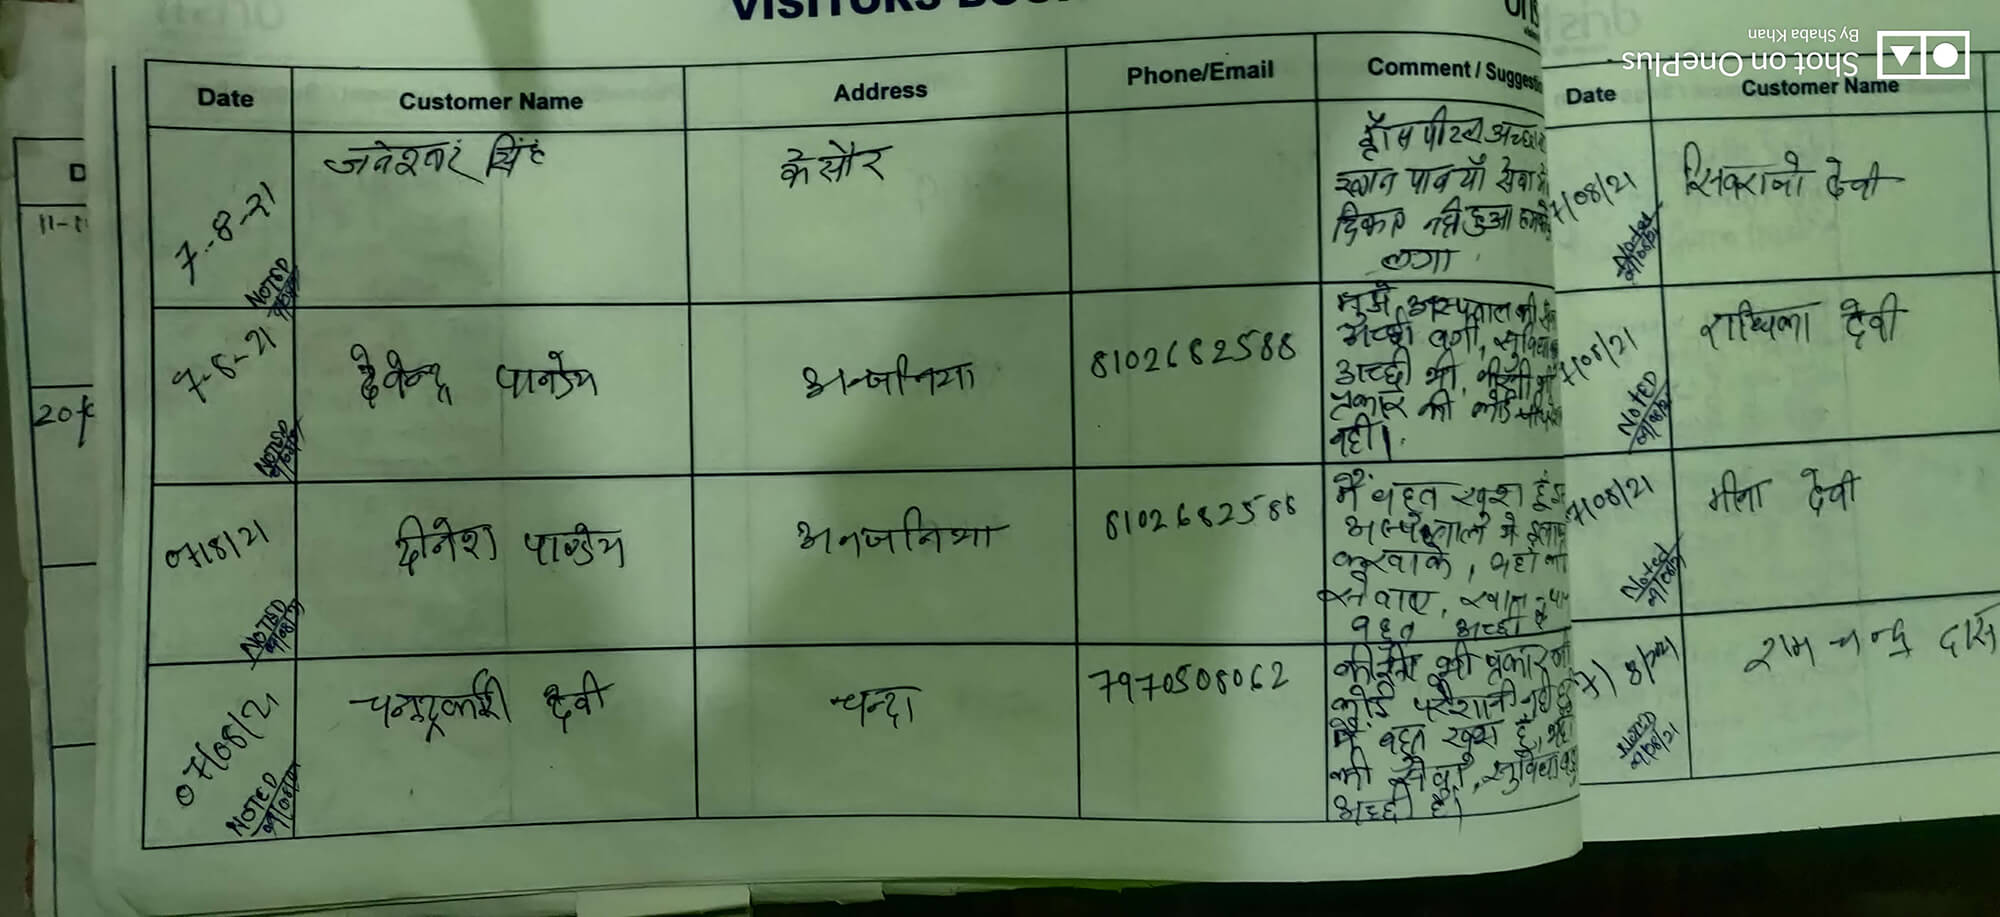 VISITORS
Date Customer Name Address Phone/Email Comment / Suggesti
7-8-21 जनेश्वर सिंह केसौर
हॉसपीटल अच्छा
खान पान यॉ सेवा में
दिकत नही हुआ हमको
लगा
NOTED
7-8-21 देवेन्द्र पाण्डेय अन्जनिया 8102682588
मुझे अस्पताल की
अच्छी लगी, सुविधा
अच्छी थी, कीसी भी
प्रकार की कोई
नही।
NOTED
07/8/21 दीनेश पाण्डेय अनजनिया 8102682588
मैं बहुत खुश हूं इस
अस्पताल मे इलाज
करवाके, यहां की
सेवाए, खान पान
बहुत अच्छी है
NOTED
07/08/21 चन्द्रकाशी देवी चन्दा 7970508062
कीसी भी प्रकार की
कोई परेशानी नही हुई
मैं बहुत खुश हूं, यहां
की सेवा, सुविधा बहु
अच्छी है।
NOTED
Date Customer Name
7/08/21 सिवरानी देवी
Noted
7/08/21 राधिका देवी
NOTED
7/08/21 मीना देवी
Noted
7/8/2021 राम चन्द्र दास
NOTED
9/08/21
11-1
20
Shot on OnePlus
By Shaba Khan